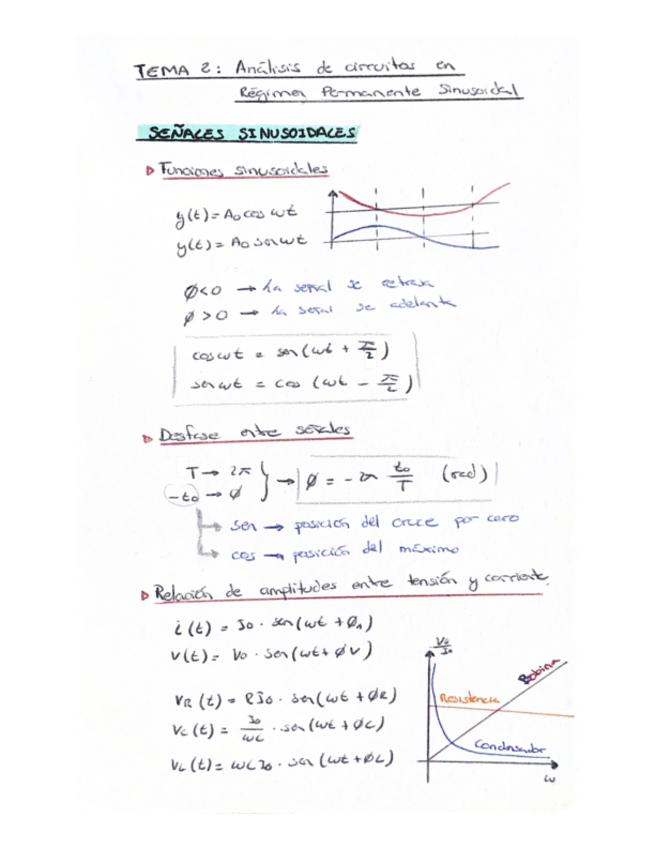 TEMA 2: Análisis de circuitos en
Régimen Permanente Sinusoidal
SEÑALES SINUSOIDALES
Funciones sinusoidales
y(t) = A₀ cos ωt
y(t) = A₀ sen ωt
φ<0 → La señal se retrasa
φ>0 → La señal se adelanta
cos ωt = sen(ωt + π/2)
sen ωt = cos (ωt - π/2)
Desfase entre señales
T → 2π
-t₀ → φ
} → φ = -2π t₀/T (rad)
sen → posición del cruce por cero
cos → posición del máximo
Relación de amplitudes entre tensión y corriente
i(t) = I₀ · sen(ωt + φ₁)
V(t) = V₀ · sen(ωt + φV)
VR (t) = R I₀ · sen(ωt + φR)
VC (t) = I₀/ωC · sen(ωt + φC)
VL (t) = ωL I₀ · sen(ωt + φL)
V₀/I₀
Bobina
Resistencia
Condensador
ω